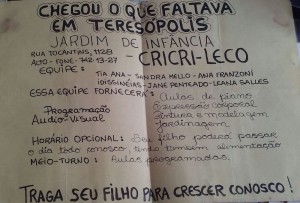 CHEGOU O QUE FALTAVA
EM TERESÓPOLIS
JARDIM DE INFÂNCIA
RUA TOCANTINS, 1128 - CRICRI-LECO
ALTO - FONE - 742-19-27
EQUIPE: TIA ANA - SANDRA MELLO - ANA FRANZONI
JANE PENTEADO - LEANA SALLES
ESSA EQUIPE FORNECERÁ: Aulas de piano
Expressão corporal
Programação Pintura e modelagem
Audio-Visual Jardinagem
HORÁRIO OPCIONAL: Seu filho poderá passar
o dia todo conosco, tendo também alimentação
MEIO-TURNO: Aulas programadas.
TRAGA SEU FILHO PARA CRESCER CONOSCO!